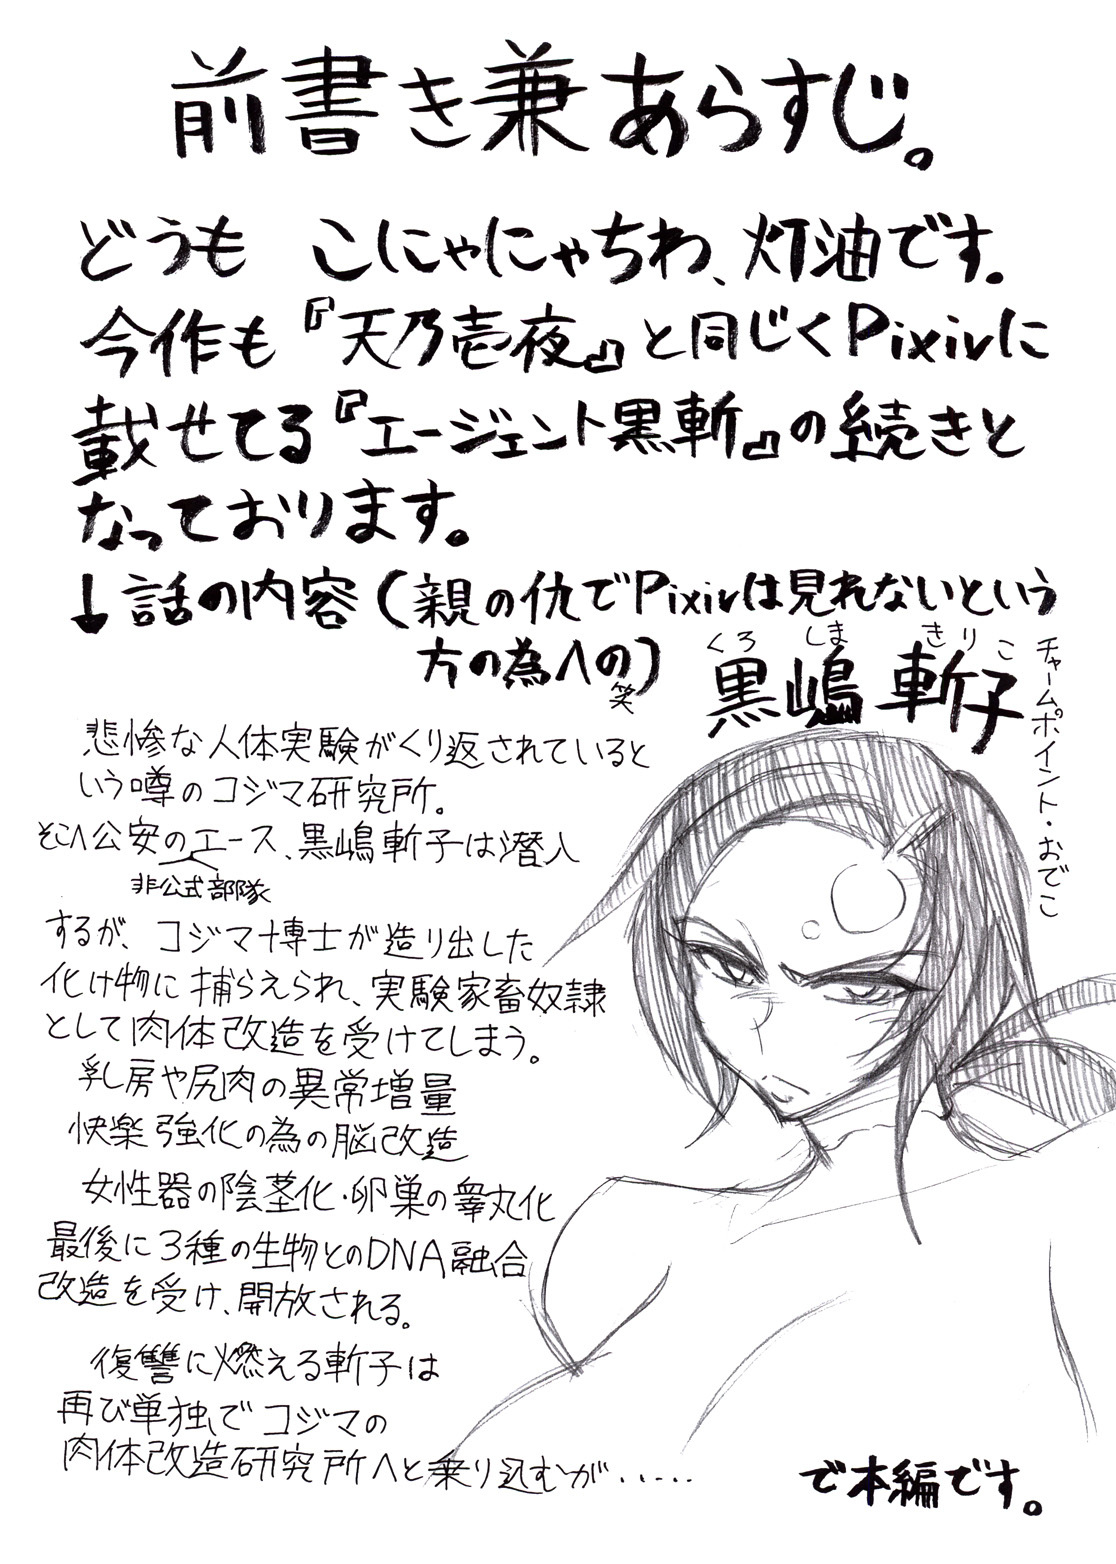 前書き兼あらすじ。
どうも こにゃにゃちわ、灯油です。
今作も『天乃壱夜』と同じくPixivに
載せてる『エージェント黒斬』の続きと
なっております。
↓話の内容(親の仇でPixivは見れないという
方の為への)
笑
くろ しま きりこ
黒嶋 斬子
チャームポイント・おでこ
悲惨な人体実験がくり返されていると
いう噂のコジマ研究所。
そこへ公安のエース、黒嶋斬子は潜入
非公式部隊
するが、コジマ博士が造り出した
化け物に捕らえられ、実験家畜奴隷
として肉体改造を受けてしまう。
乳房や尻肉の異常増量
快楽強化の為の脳改造
女性器の陰茎化・卵巣の睾丸化
最後に3種の生物とのDNA融合
改造を受け、開放される。
復讐に燃える斬子は
再び単独でコジマの
肉体改造研究所へと乗り込むが‥‥‥
で本編です。